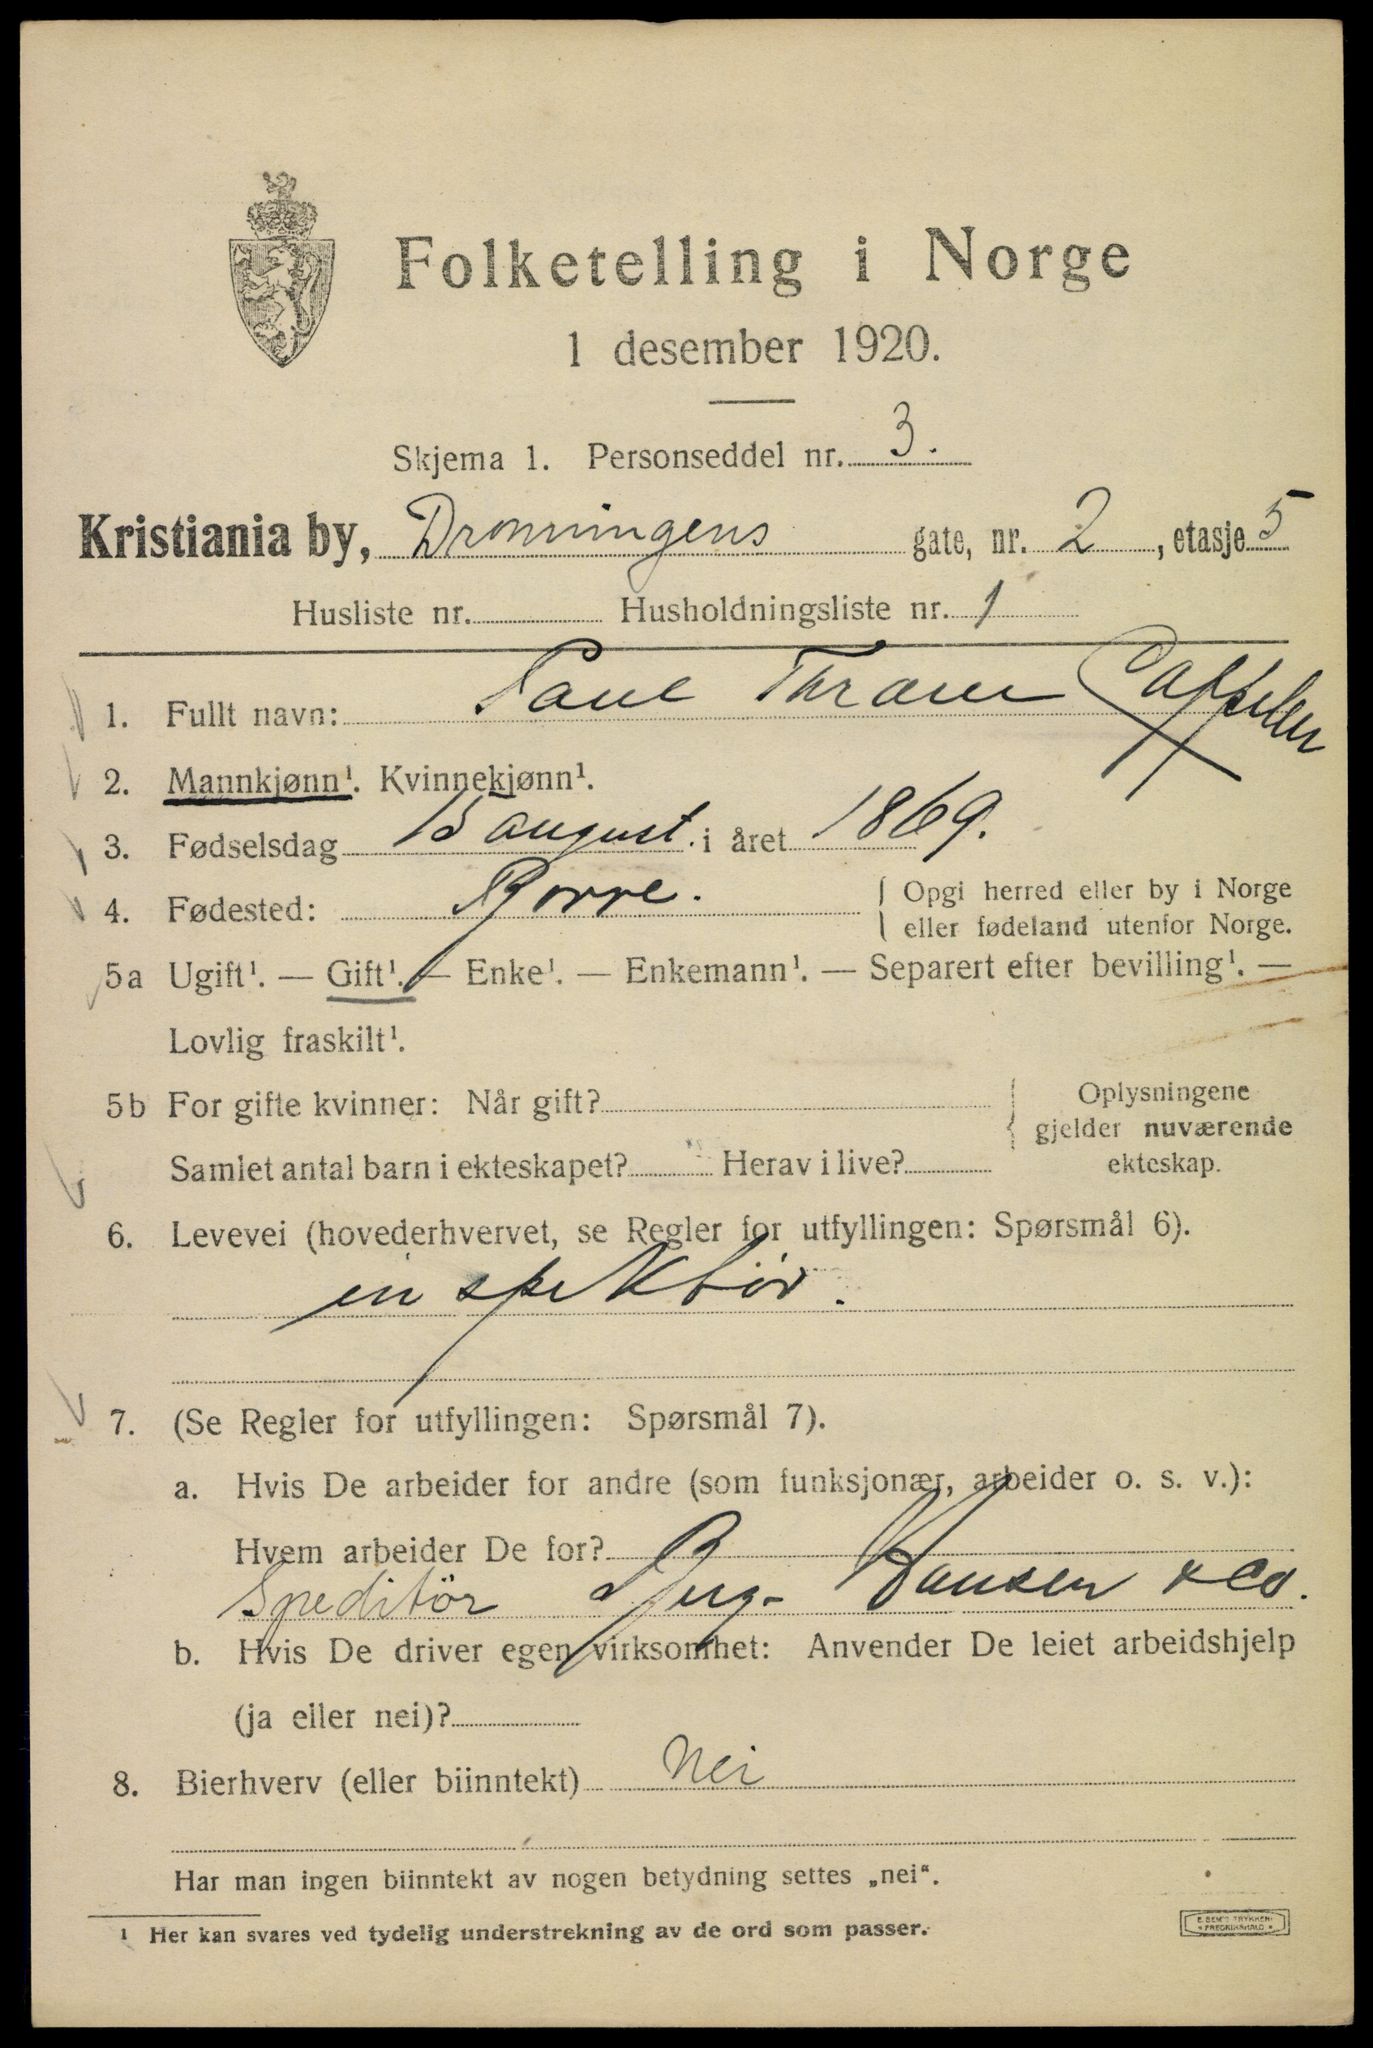 Folketelling i Norge
1 desember 1920.
Skjema 1. Personseddel nr. 3.
Kristiania by, Dronningens gate, nr. 2, etasje 5
Husliste nr. Husholdningsliste nr. 1
1. Fullt navn: Paul Thrane Cappelen
2. Mannkjønn¹. Kvinnekjønn¹.
3. Fødselsdag 15 august. i året 1869.
4. Fødested: Borre. Opgi herred eller by i Norge
eller fødeland utenfor Norge.
5a Ugift¹. — Gift¹. — Enke¹. — Enkemann¹. — Separert efter bevilling¹. —
Lovlig fraskilt¹.
5b For gifte kvinner: Når gift? Oplysningene
gjelder nuværende
Samlet antal barn i ekteskapet? Herav i live? ekteskap.
6. Levevei (hovederhvervet, se Regler for utfyllingen: Spørsmål 6).
inspektör.
7. (Se Regler for utfyllingen: Spørsmål 7).
a. Hvis De arbeider for andre (som funksjonær, arbeider o. s. v.):
Hvem arbeider De for?
Speditör Berg-Hansen & Co.
b. Hvis De driver egen virksomhet: Anvender De leiet arbeidshjelp
(ja eller nei)?
8. Bierhverv (eller biinntekt) Nei
Har man ingen biinntekt av nogen betydning settes „nei“.
¹ Her kan svares ved tydelig understrekning av de ord som passer.
E. SEM'S TRYKKERI
FREDRIKSHALD